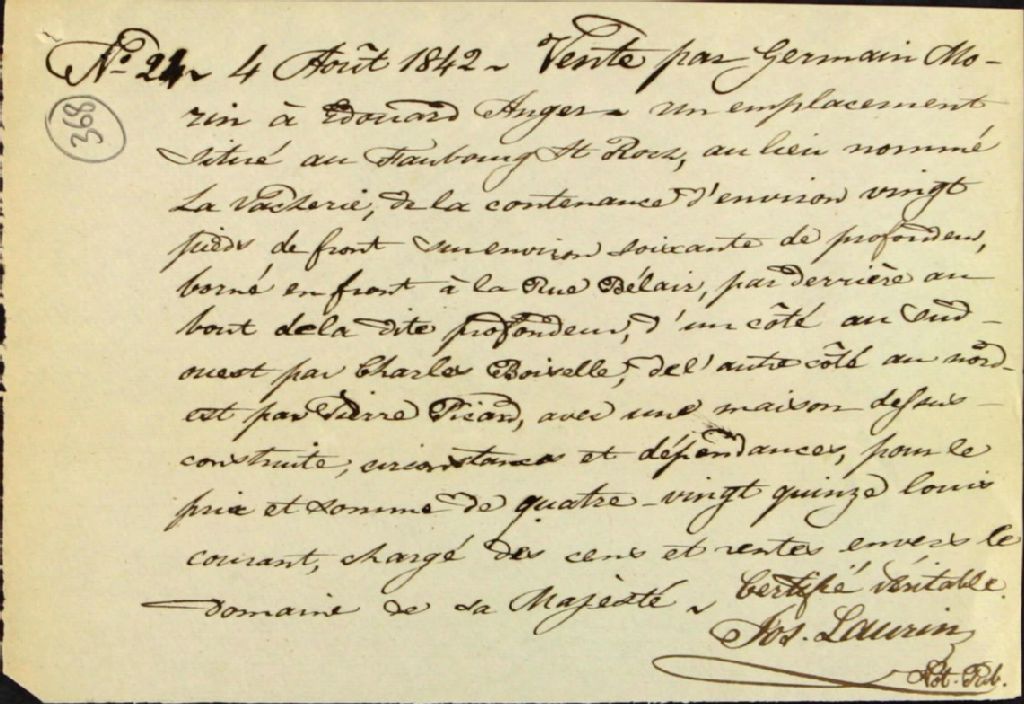 No 24 4 Août 1842 ~ Vente par Germain Mo-
368
rin à Edouard Auger ~ un emplacement
situé au Faubourg St Roch, au lieu nommé
La Vacherie, de la contenance d'environ vingt
pieds de front sur environ soixante de profondeur,
borné en front à la Rue Bélair, par derrière au
bout de la dite profondeur, d'un côté au Sud-
ouest par Charles Boivelle, de l'autre côté au nord-
est par Pierre Picard, avec une maison dessus
construite, circonstances et dépendances, pour le
prix et somme de quatre-vingt quinze louis
courant, chargé des cens et rentes envers le
Domaine de Sa Majésté ~ Certifié Véritable.
Jos. Laurin
Not. Pub.